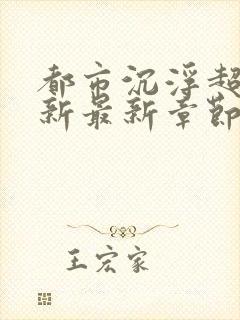 都市沉浮超
新最新章节
王宏家